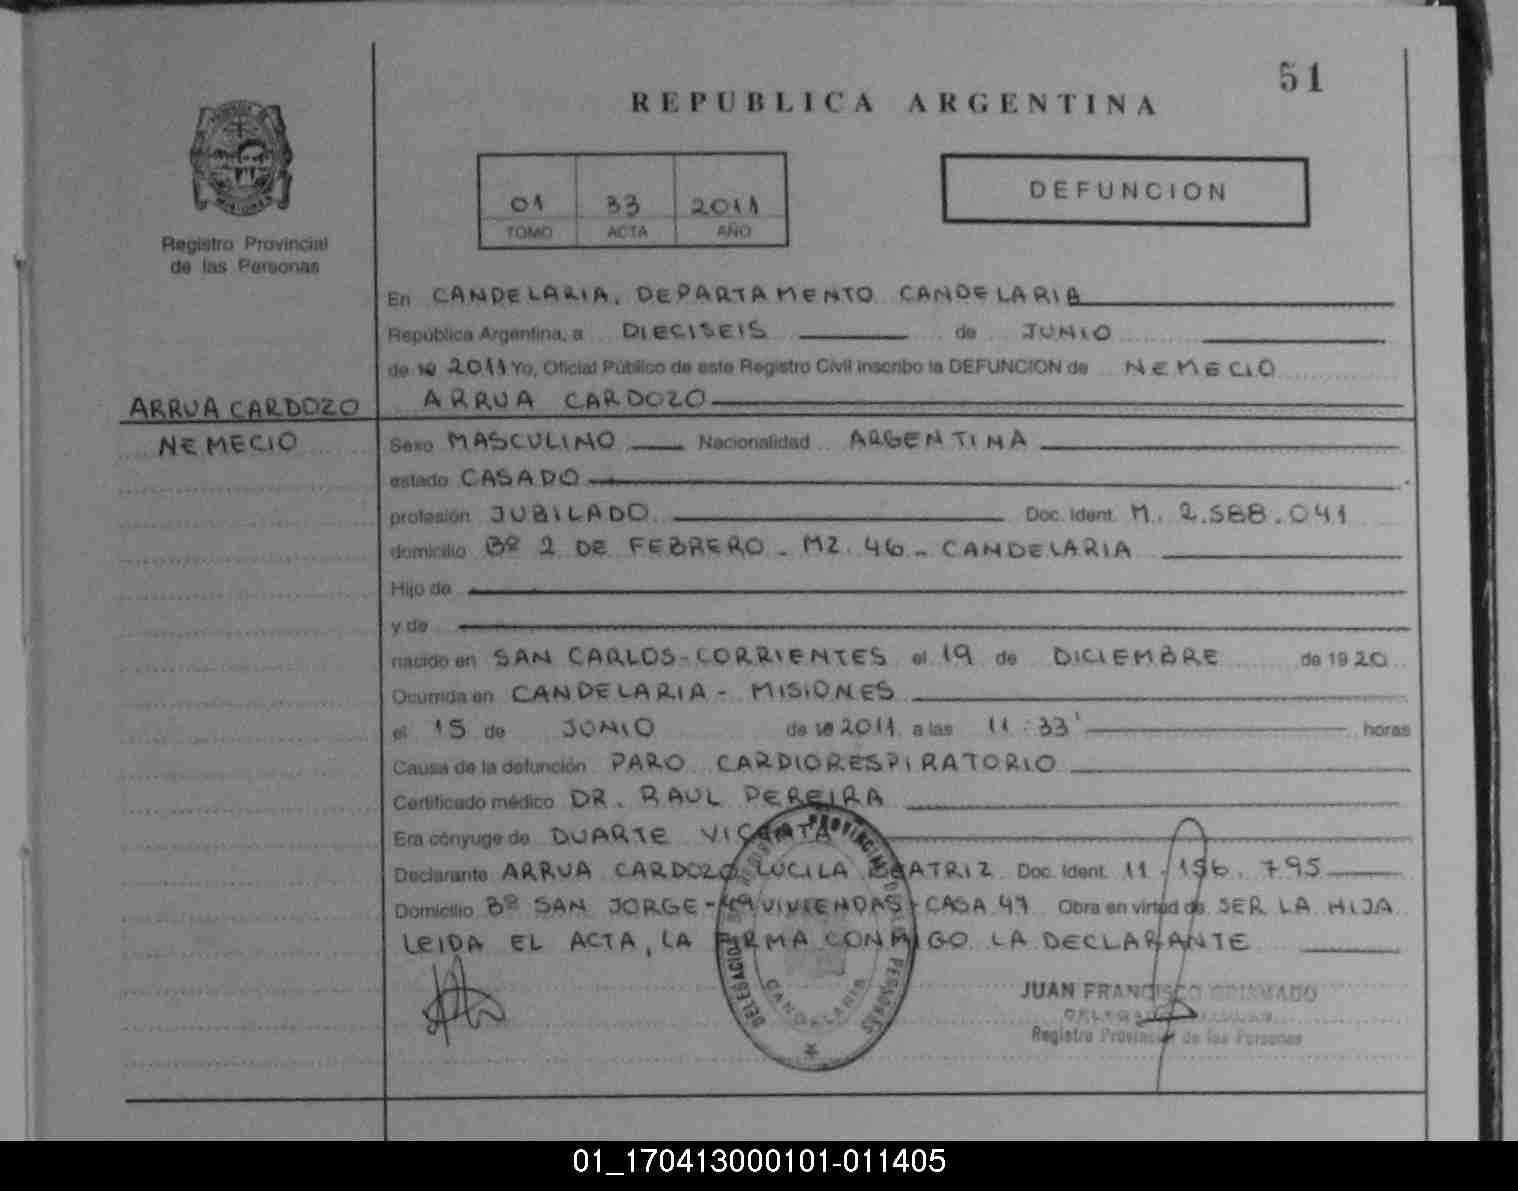 51
REPUBLICA ARGENTINA
Registro Provincial
de las Personas
01 33 2011
TOMO ACTA AÑO
DEFUNCION
En CANDELARIA, DEPARTAMENTO CANDELARIA
República Argentina, a DIECISEIS de JUNIO
de 19 2011 Yo, Oficial Público de este Registro Civil inscribo la DEFUNCION de NEMECIO
ARRUA CARDOZO
ARRUA CARDOZO
NEMECIO
Sexo MASCULINO Nacionalidad ARGENTINA
estado CASADO
profesión JUBILADO Doc. Ident. M. 2.588.041
domicilio Bº 2 DE FEBRERO - MZ. 46 - CANDELARIA
Hijo de
y de
nacido en SAN CARLOS-CORRIENTES el 19 de DICIEMBRE de 1920
Ocurrida en CANDELARIA - MISIONES
el 15 de JUNIO de 19 2011 a las 11:33' horas
Causa de la defunción PARO CARDIORESPIRATORIO
Certificado médico DR. RAUL PEREIRA
Era cónyuge de DUARTE VICENTA
Declarante ARRUA CARDOZO LUCILA BEATRIZ Doc. Ident. 11.156.795
Domicilio Bº SAN JORGE-49 VIVIENDAS-CASA 47 Obra en virtud de SER LA HIJA
LEIDA EL ACTA, LA FIRMA CONMIGO LA DECLARANTE
CANDELARIA
JUAN FRANCISCO
Registro Provincial de las Personas
01_170413000101-011405